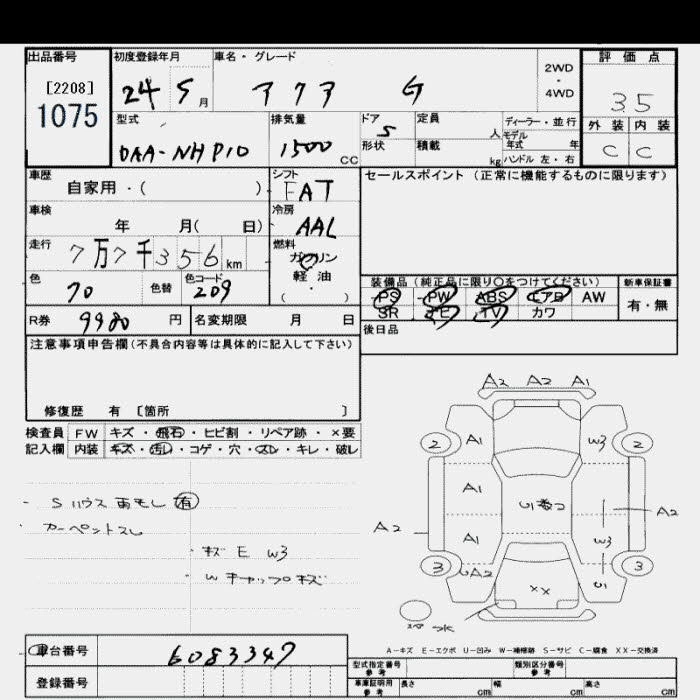 出品番号 初度登録年月 車名・グレード 2WD・4WD 評価点
[2208]
1075
24 5月 アクア G 3.5
型式 排気量 ドア 定員 ディーラー・並行 外装 内装
DAA-NHP10 1500cc 5 人 モデル年式 年 C C
形状 積載 kg ハンドル 左・右
車歴 シフト セールスポイント (正常に機能するものに限ります)
自家用・( ) FAT
車検 冷房
年 月( 日) AAC
走行 燃料
7万7千356km ガソリン
軽油
( ・ )
色 色替 色コード 装備品 (純正品に限り○をつけてください) 新車保証書
70 209 PS PW ABS エアB AW 有・無
SR TV カワ
R券 9980円 名変期限 月 日 後日品
注意事項申告欄(不具合内容等は具体的に記入して下さい)
修復歴 有 〔箇所 〕
検査員 FW キズ・飛石・ヒビ割・リペア跡・×要
記入欄 内装 キズ・汚れ・コゲ・穴・スレ・キレ・破レ
A2 A2 A1
2 A1 W3 2
A1
A2 A1 W3 A2
3 A2 3
XX
- Sハウス あもし 有
カーペットスレ
・キズ E W3
・Wキャップキズ
スペア
A-キズ E-エクボ U-凹み W-補修跡 S-サビ C-腐食 XX-交換済
車台番号 6083347
登録番号
型式指定番号 参考 類別区分番号 参考
車庫証明用 参考 長さ cm 幅 cm 高さ cm